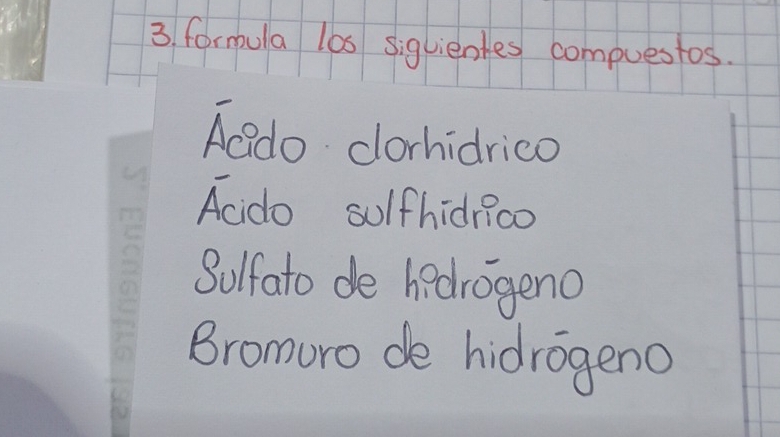 3. formula los siguientes compuestos.
Ácido clorhídrico
Ácido sulfhídrico
Sulfato de hidrógeno
Bromuro de hidrógeno